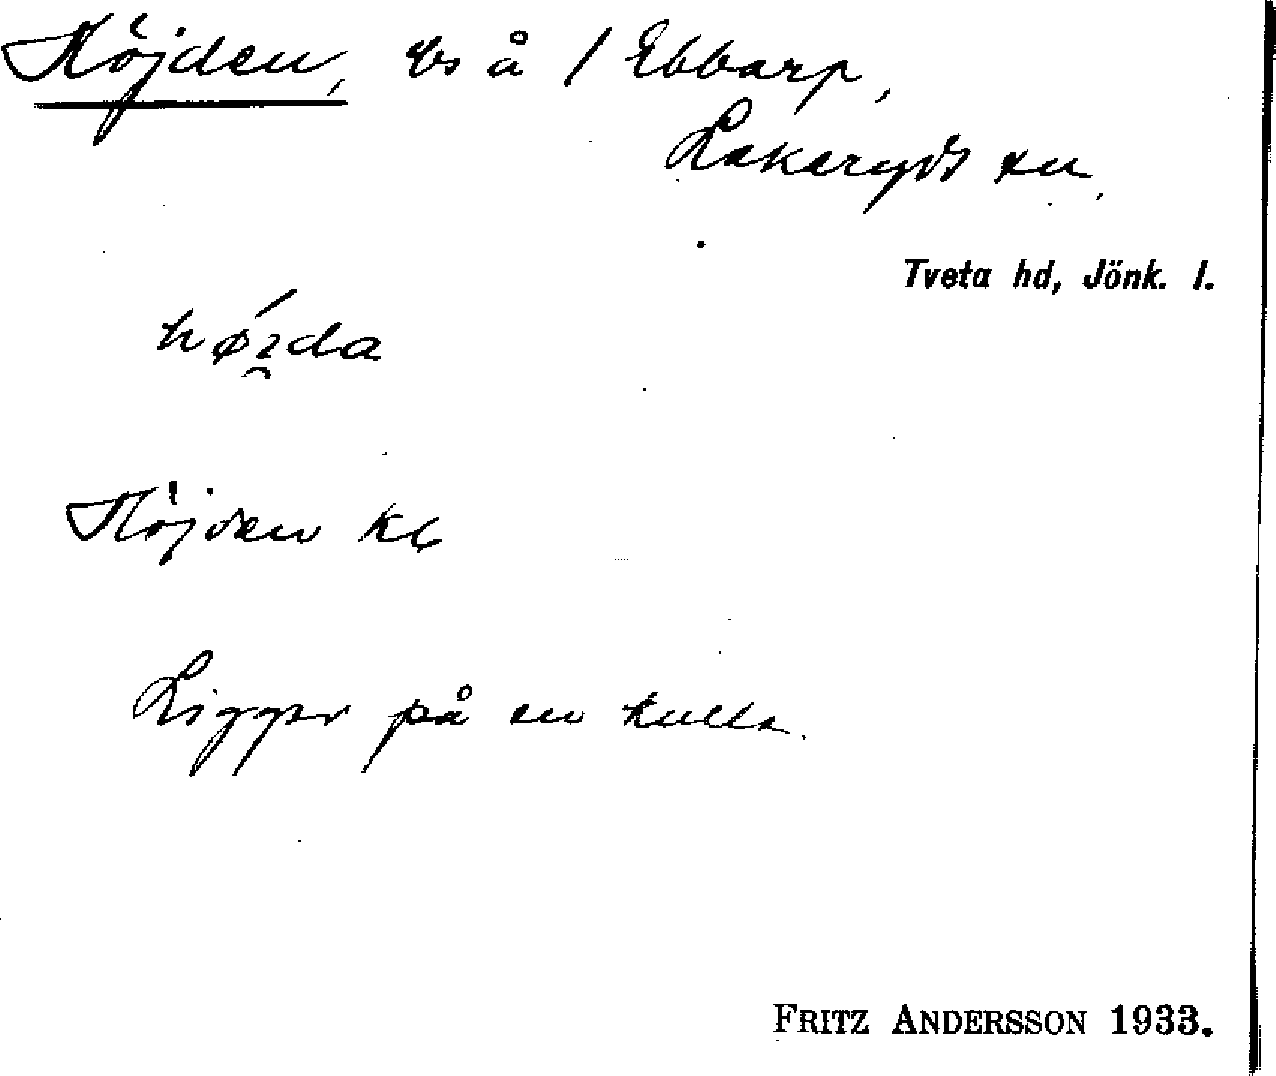 Höjden, bs å / Ebbarp,
Lekeryds sn.
Tveta hd, Jönk. l.
hǿi̯da
Höjden kb
Ligger på en kulle.
FRITZ ANDERSSON 1933.